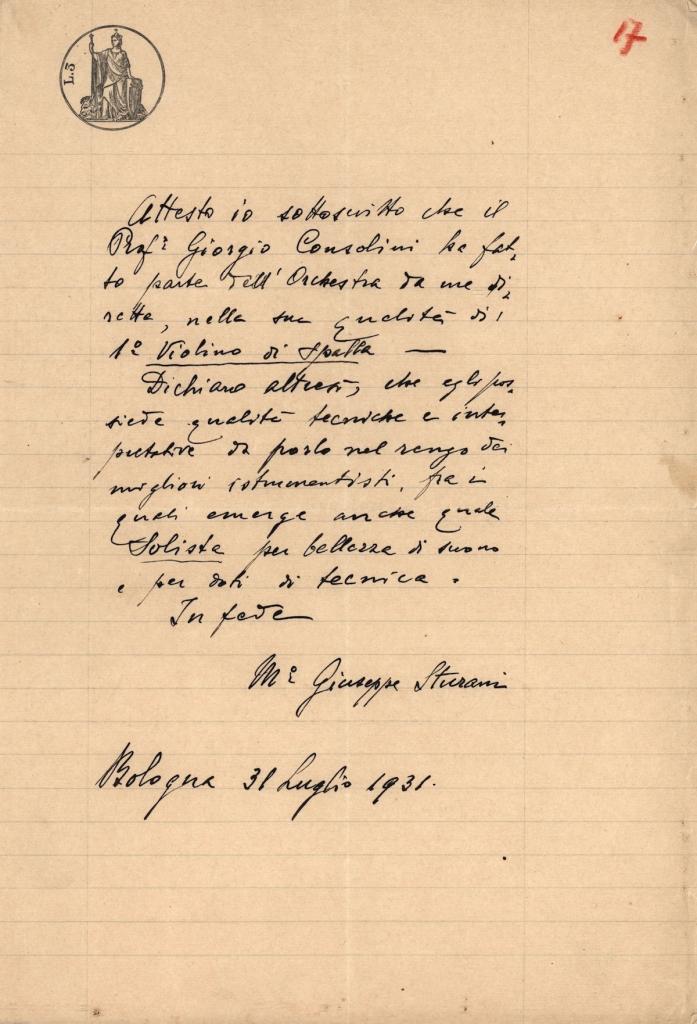 L.3
17
Attesto io sottoscritto che il
Profr Giorgio Consolini ha fat-
to parte dell'Orchestra da me di-
retta, nella sua qualità di
1º Violino di Spalla —
Dichiaro altresì, che egli pos-
siede qualità tecniche e inter-
pretative da porlo nel rango dei
migliori istrumentisti, fra i
quali emerge anche quale
Solista per bellezza di suono
e per doti di tecnica.
In fede
Mº Giuseppe Sturani
Bologna 31 Luglio 1931.